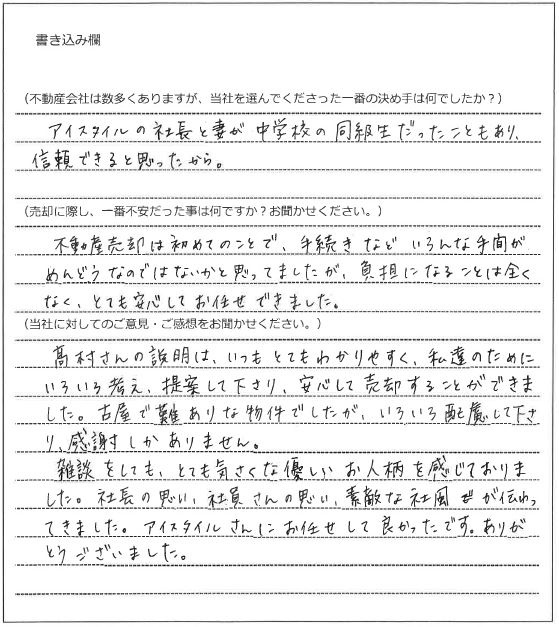 書き込み欄
（不動産会社は数多くありますが、当社を選んでくださった一番の決め手は何でしたか？）
アイスタイルの社長と妻が中学校の同級生だったこともあり、
信頼できると思ったから。
（売却に際し、一番不安だった事は何ですか？お聞かせください。）
不動産売却は初めてのことで、手続きなどいろんな手間が
めんどうなのではないかと思ってましたが、負担になることは全く
なく、とても安心してお任せできました。
（当社に対してのご意見・ご感想をお聞かせください。）
髙村さんの説明は、いつもとてもわかりやすく、私達のために
いろいろ考え、提案して下さり、安心して売却することができま
した。古屋で難ありな物件でしたが、いろいろ配慮して下さ
り、感謝しかありません。
雑談をしても、とても気さくな優しいお人柄を感じておりま
した。社長の思い、社員さんの思い、素敵な社風が伝わっ
てきました。アイスタイルさんにお任せして良かったです。ありが
とうございました。